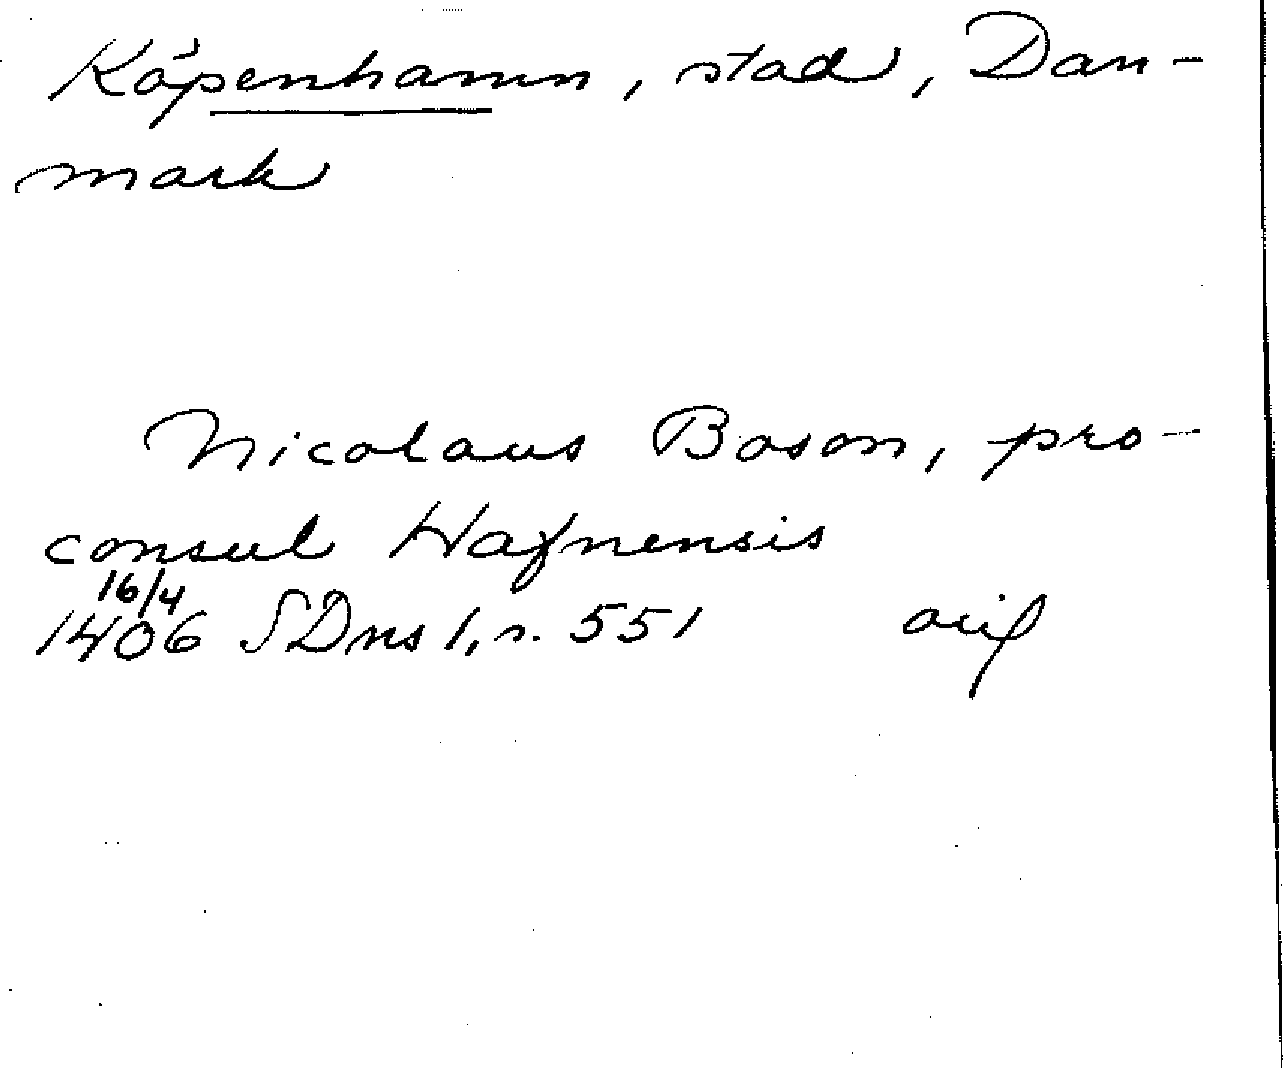 Köpenhamn, stad, Dan-
mark
Nicolaus Boson, pro-
consul Hafnensis
16/4
1406 SDns 1, s. 551